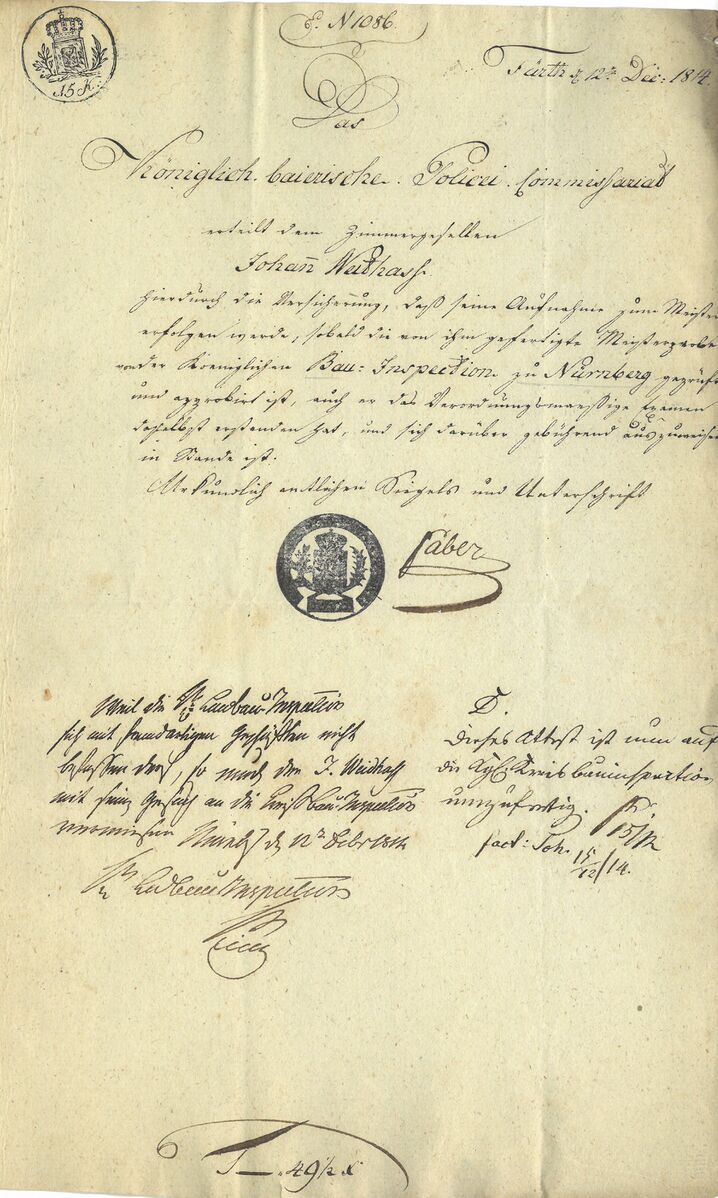 P. N 1086.
15 K:
Fürth d 12t Dec: 1814.
Das
Königlich baierische Policei Commissariat
erteilt dem Zimmergesellen
Johann Weithass
hierdurch die Versicherung, daß seine Aufnahme zum Meister
erfolgen werde, sobald die von ihm gefertigte Meisterprobe
von der Koeniglichen Bau-Inspection zu Nürnberg geprüft
und approbirt ist, auch er das Verordnungsmaeßige Examen
daselbst erstanden hat, und sich darüber gebührend auszuweisen
in Stande ist.
Urkundlich amtlichen Siegels und Unterschrift
Faber
Weil die Landbau-Inspection
sich mit derartigen Geschäften nicht
befassen darf, so wird der J. Weidhass
mit sein Gesuch an die Kreisbau-Inspection
verwiesen d 12t 1814
Landbau Inspection
D.
Dieses Attest ist nun auf
die Kgl. Kreis Bauinspection
umzufertig.
15/12
fact: 15/12/14.
49 1/2 x